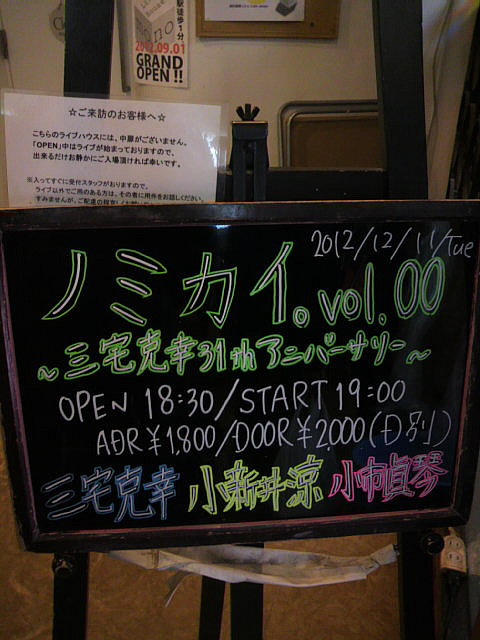 駅徒歩1分
2012.09.01
GRAND
OPEN!!
☆ご来訪のお客様へ☆
こちらのライブハウスには、中扉がございません。
「OPEN」中はライブが始まっておりますので、
出来るだけお静かにご入場頂ければ幸いです。
※入ってすぐに受付スタッフがおりますので、
ライブ以外でご用のある方は、その者に用件をお話しください。
2012/12/11/Tue
ノミカイ。vol.00
~三宅克幸31thアニバーサリー~
OPEN 18:30/START 19:00
ADR¥1,800/DOOR¥2,000(D別)
三宅克幸 小新井涼 小市貞琴